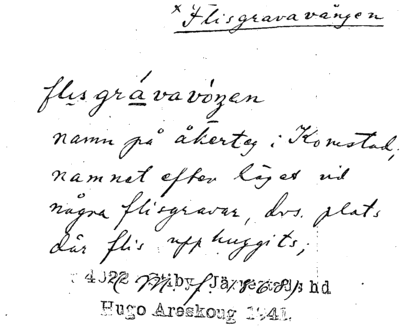 × Flisgravavången
flisgrávavóŋen
namn på åkerteg i Komstad;
namnet efter läget vid
några flisgravar, dvs. plats
där flis upphuggits;
4022 Järrestads hd
Hugo Areskoug 1941